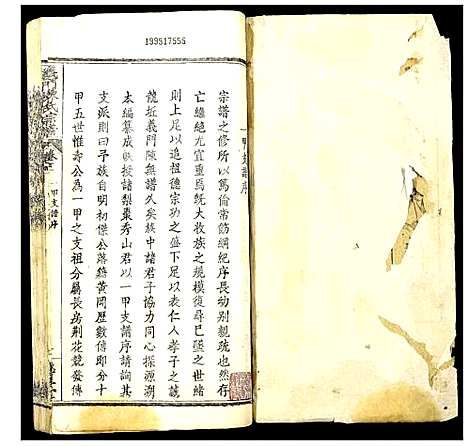 199517555
一甲支譜序
宗譜之修所以篤倫常飭綱紀序長幼別親疏也然存
亡繼絕尤宜重焉旣大收族之規模復尋已墜之世緒
則上足以追祖德宗功之盛下足以表仁人孝子之誠
龍近義門陳無譜久矣族中諸君子協力同心探源溯
本編纂成帙授諸梨棗秀山君以一甲支譜序請詢其
支派則曰予族自明初傑公落籍黃岡歷數傳即分十
甲五世惟壽公為一甲之支祖分屬長房荆花競發傳
一甲支譜序